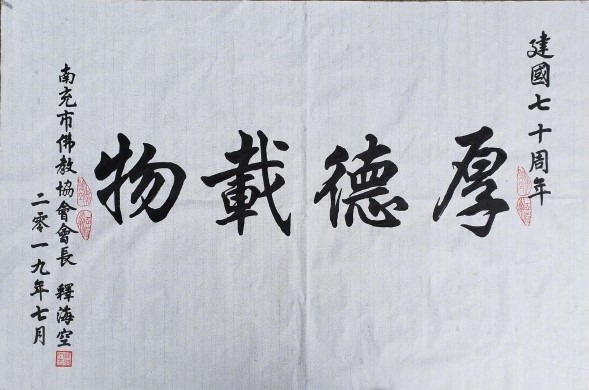 建國七十周年
厚德載物
南充市佛教協會會長 釋海空
二零一九年七月